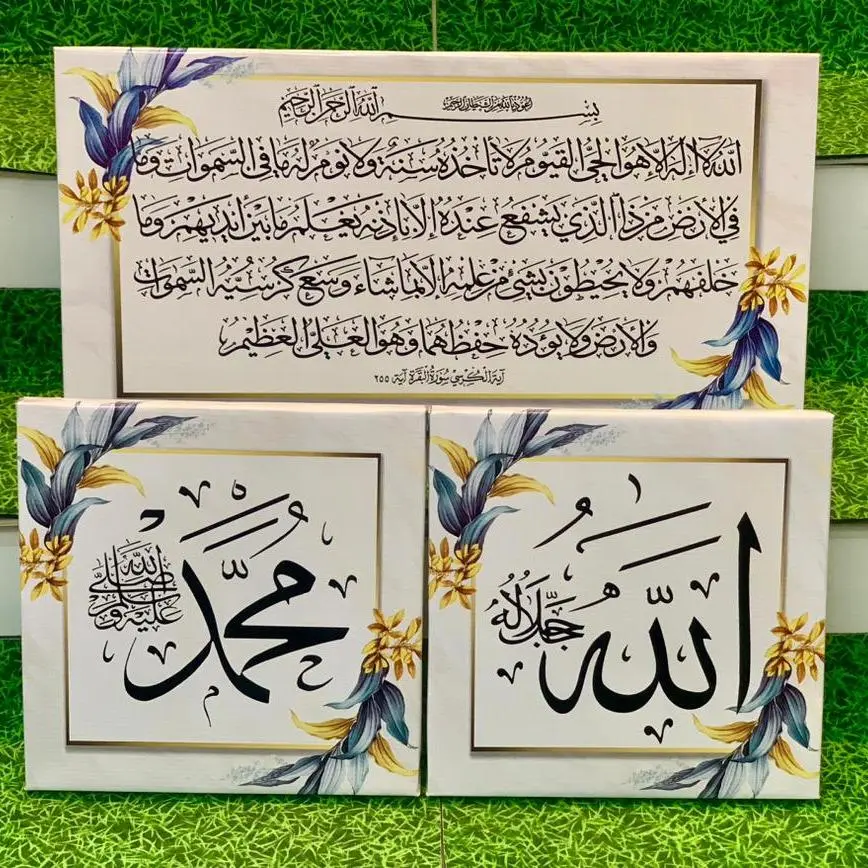 اعوذ بالله من الشيطان الرجيم
بسم الله الرحمن الرحيم
الله لا إله إلا هو الحي القيوم لا تأخذه سنة ولا نوم له ما في السموات وما
في الارض من ذا الذي يشفع عنده إلا بإذنه يعلم ما بين أيديهم وما
خلفهم ولا يحيطون بشيء من علمه إلا بما شاء وسع كرسيه السموات
والارض ولا يؤده حفظهما وهو العلي العظيم
آية الكرسي سورة البقرة آية ٢٥٥
الله
جل جلاله
محمد
صلى الله عليه وسلم